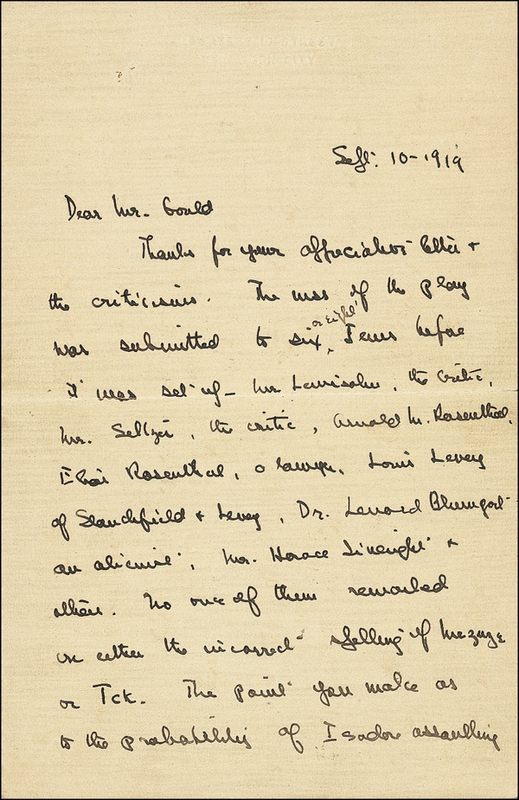 Sept. 10-1919
Dear Mr. Gould
Thanks for your appreciative letter +
the criticisms. The mss of the play
or eight
was submitted to six Jews before
it was set up - Mr Lewisohn, the critic,
Mr. Seltzer, the critic, Arnold M. Rosenthal,
Elias Rosenthal, a lawyer, Louis Levey
of Stanchfield & Levey, Dr. Leonard Blumgart
an alienist, Mr. Horace Liveright +
others. No one of them remarked
on either the incorrect spelling of Mezuze
or Tck. The point you make as
to the probability of Isadore assaulting